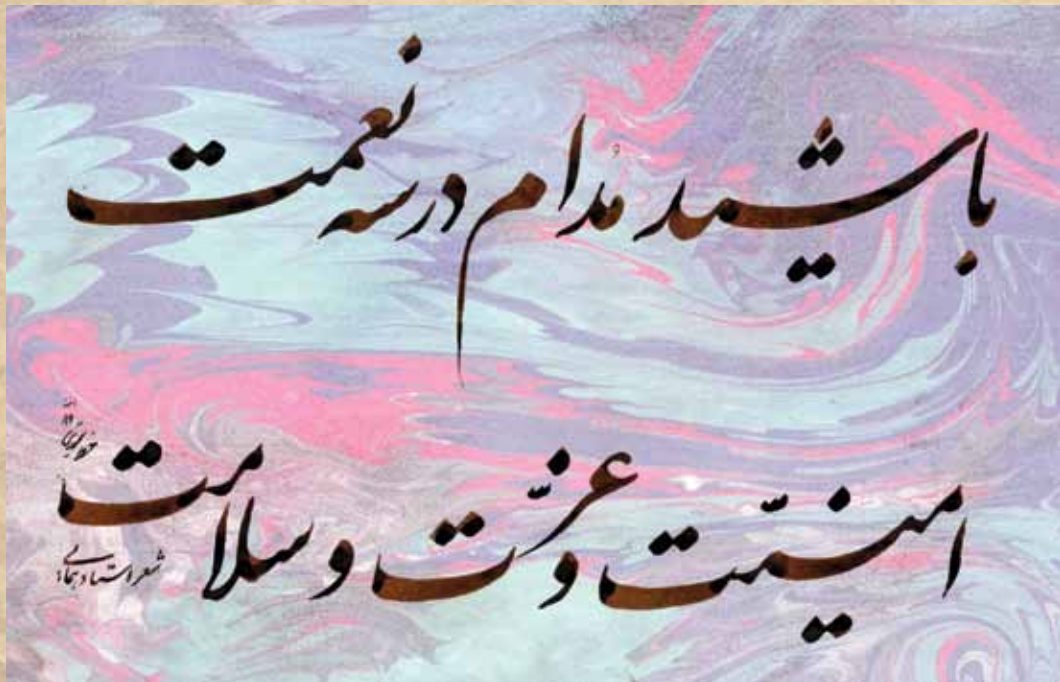 باشید مُدام در سه نعمت
امنیّت و عزّت و سلامت
شعر استاد همایی